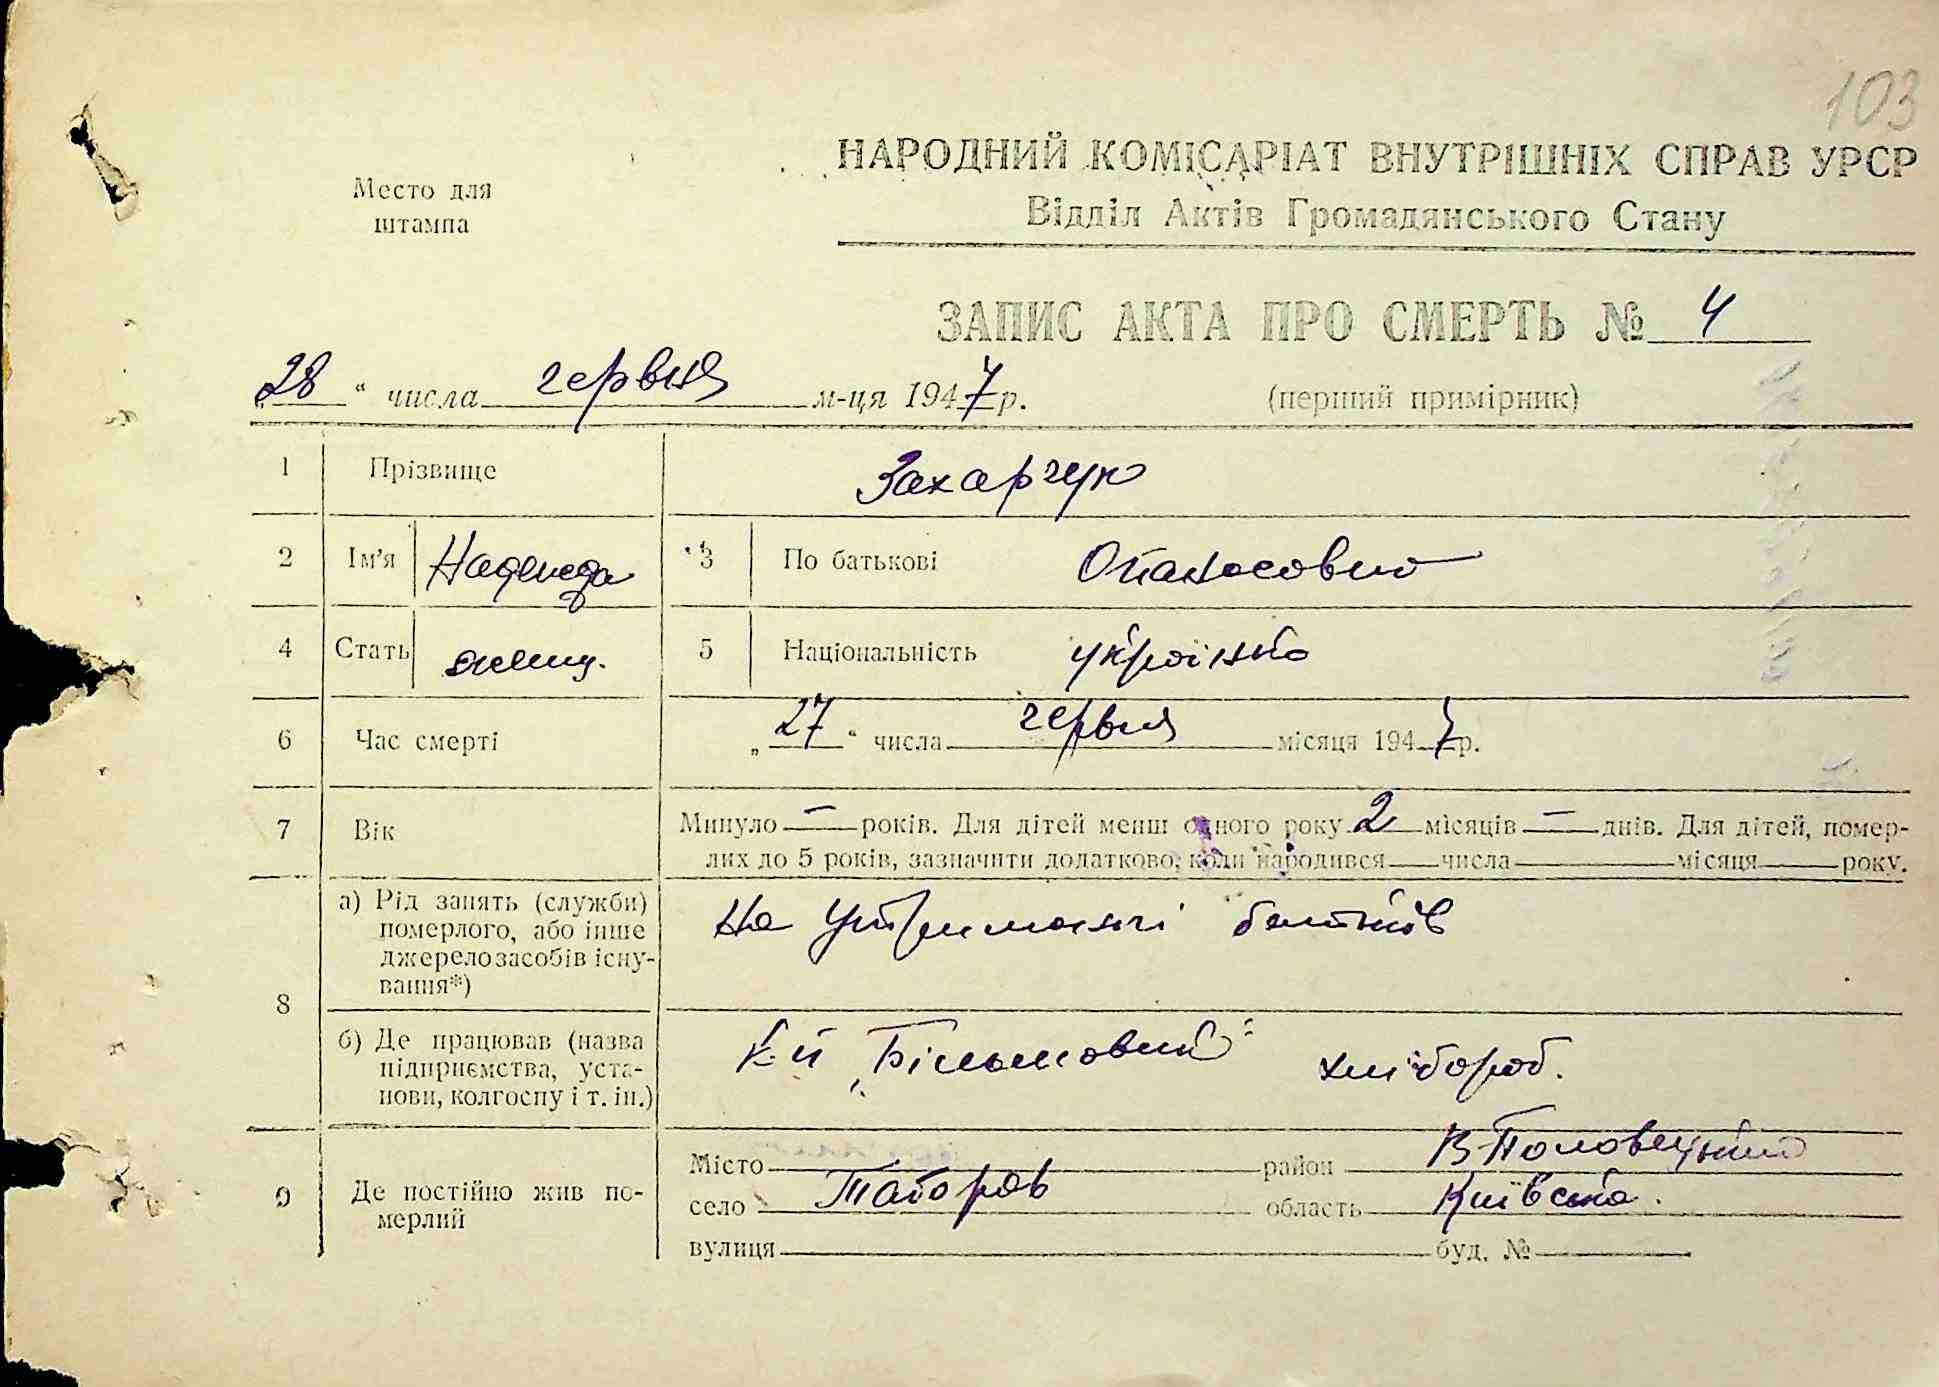 103
НАРОДНИЙ КОМІСАРІАТ ВНУТРІШНІХ СПРАВ УРСР
Место для
штампа
Відділ Актів Громадянського Стану
ЗАПИС АКТА ПРО СМЕРТЬ № 4
„28“ числа червня м-ця 1947 р. (перший примірник)
1 Прізвище Захарчук
2 Ім'я Надежда 3 По батькові Опанасовна
4 Стать женщ. 5 Національність українка
6 Час смерті „27“ числа червня місяця 1947 р.
7 Вік Минуло — років. Для дітей менш одного року 2 місяців — днів. Для дітей, помер-
лих до 5 років, зазначити додатково, коли народився числа місяця року.
8 а) Рід занять (служби) померлого, або інше джерело засобів існу-вання*) на утриманні батьків
б) Де працював (назва підприємства, уста-нови, колгоспу і т. ін.) „ " хлібороб.
9 Де постійно жив по-мерлий
Місто район В-Половецький
село Таборов область Київська.
вулиця буд. №